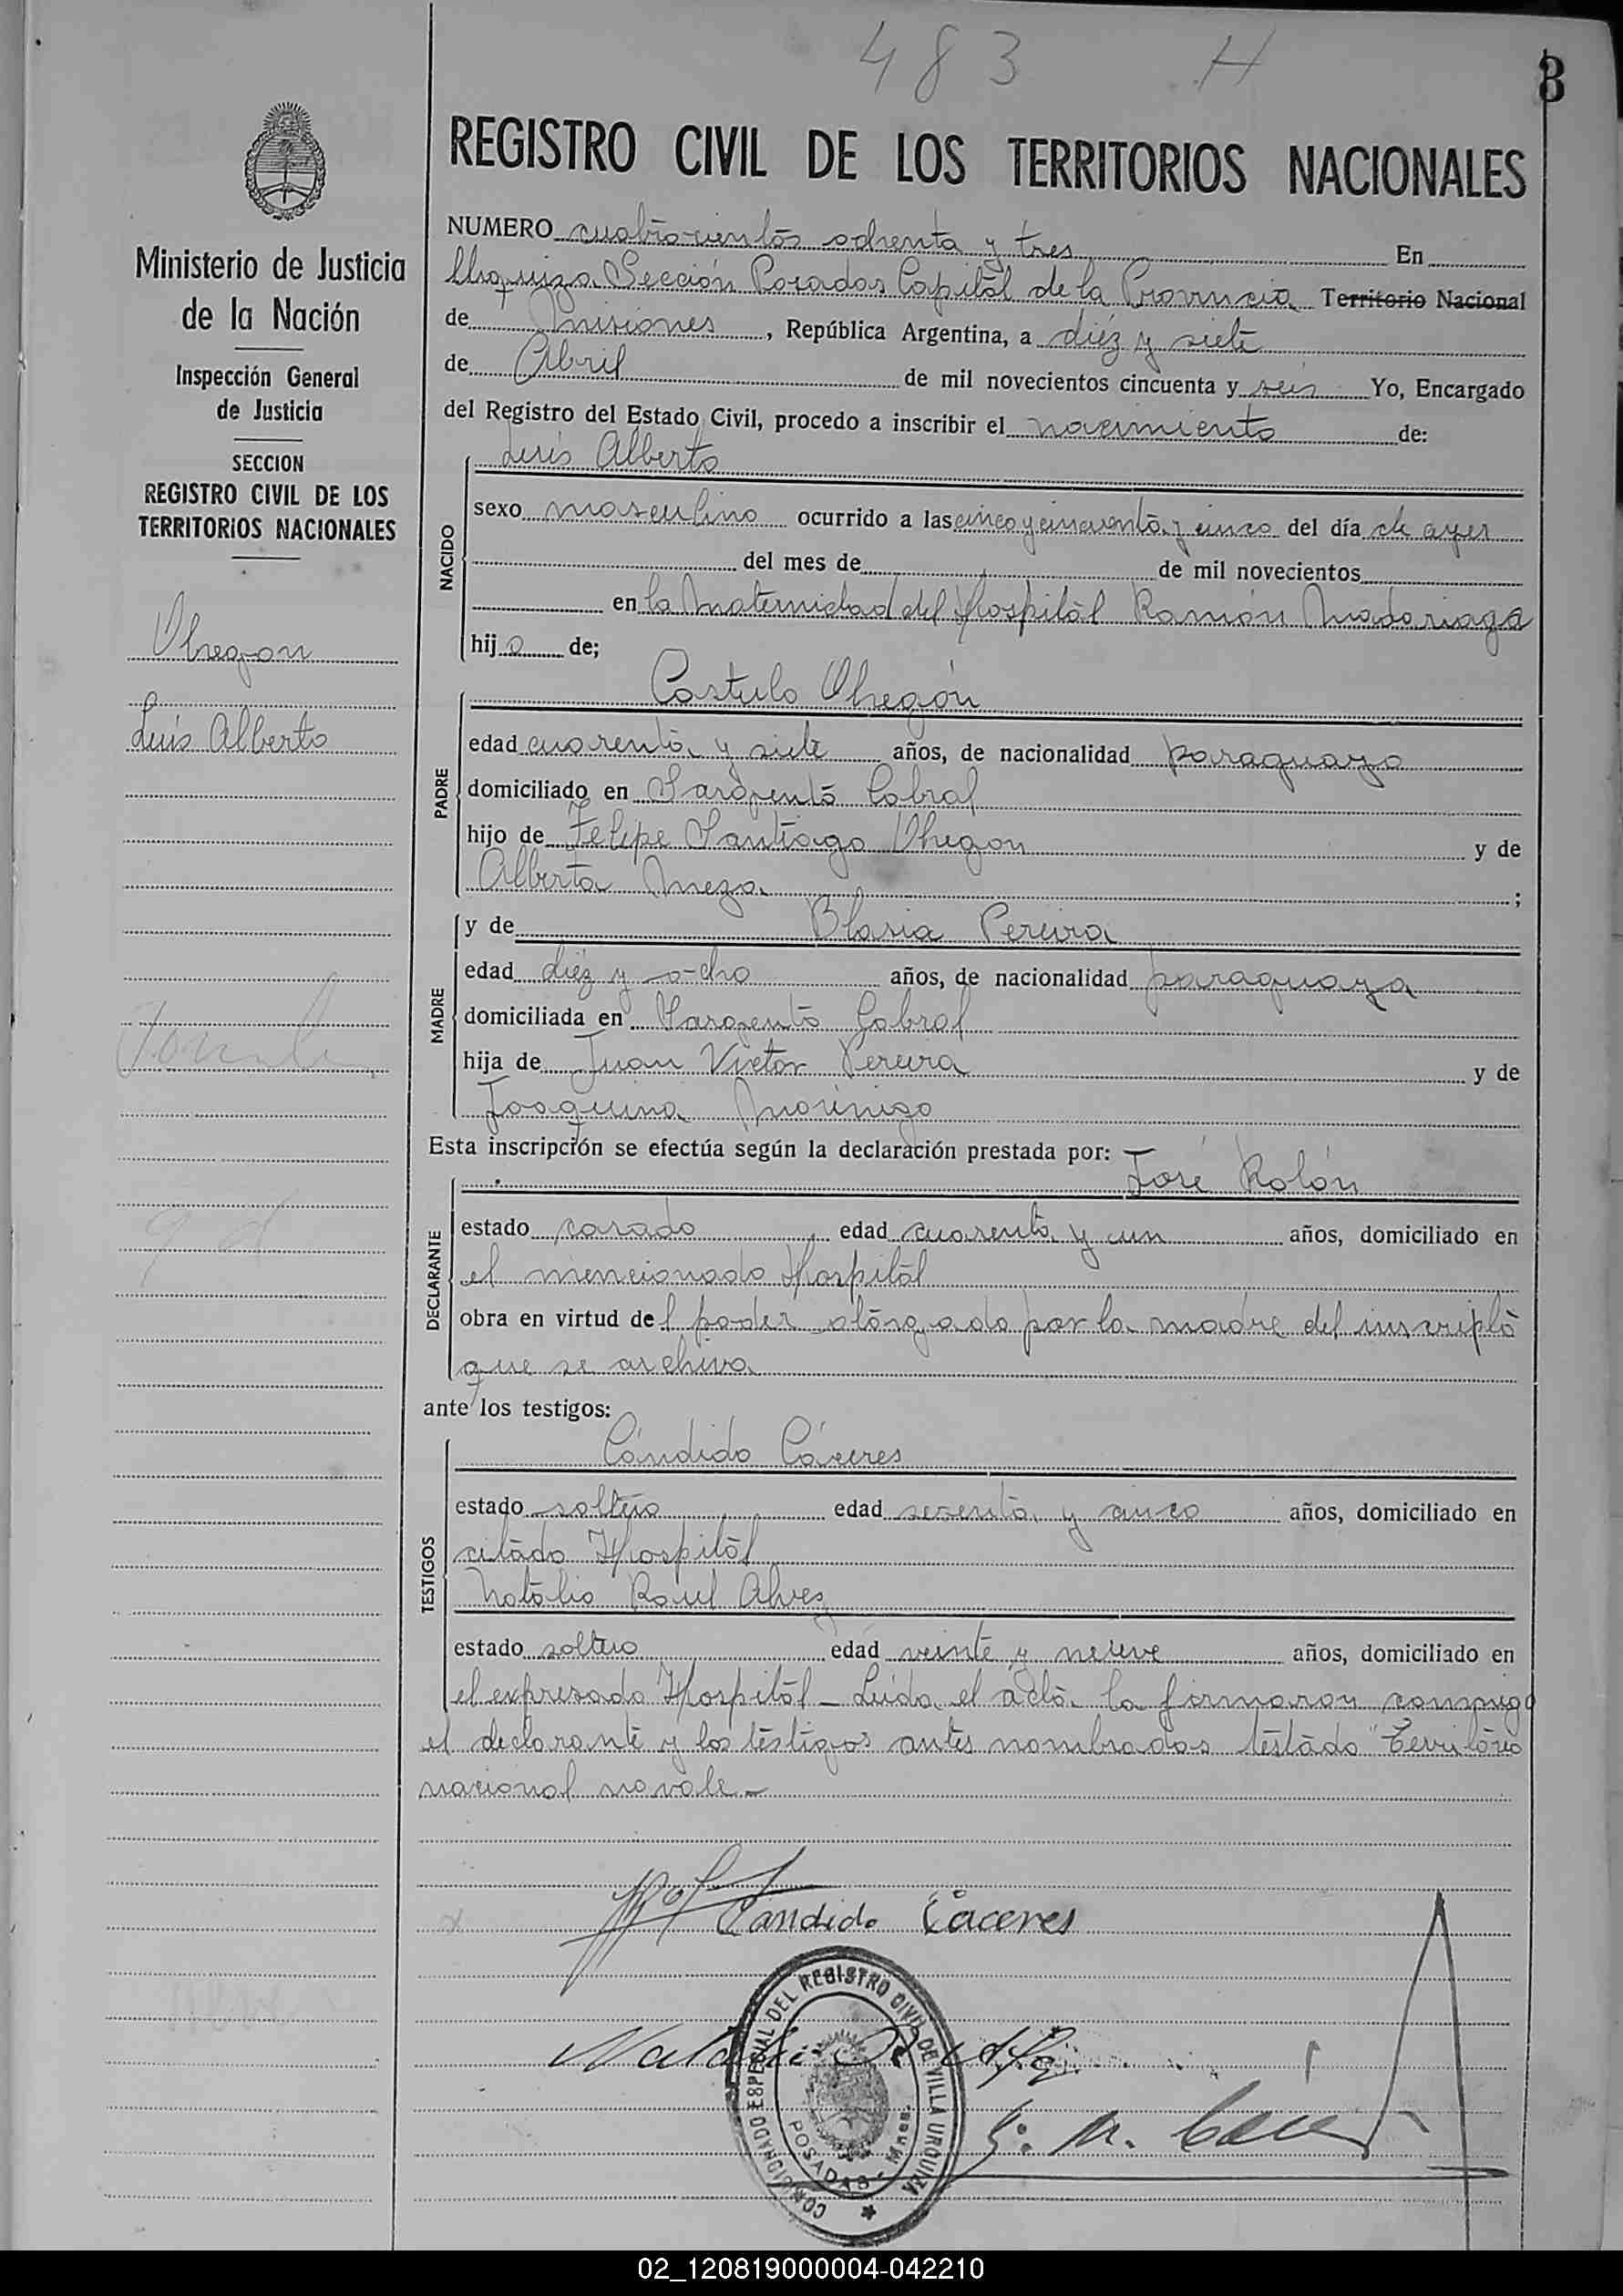 483 H
8
REGISTRO CIVIL DE LOS TERRITORIOS NACIONALES
Ministerio de Justicia
de la Nación
Inspección General
de Justicia
SECCION
REGISTRO CIVIL DE LOS
TERRITORIOS NACIONALES
Obregon
Luis Alberto
NUMERO cuatrocientos ochenta y tres En
Urquiza Sección Posadas Capital de la Provincia Territorio Nacional
de Misiones, República Argentina, a diéz y siete
de Abril de mil novecientos cincuenta y seis Yo, Encargado
del Registro del Estado Civil, procedo a inscribir el nacimiento de:
NACIDO
Luis Alberto
sexo masculino ocurrido a las cinco y cincuenta y cinco del día de ayer
del mes de de mil novecientos
en la Maternidad del Hospital Ramón Madariaga
hijo de;
PADRE
Castulo Obregón
edad cuarenta y siete años, de nacionalidad paraguayo
domiciliado en Sargento Cabral
hijo de Felipe Santiago Obregon y de
Alberta Meza ;
MADRE
y de Blasia Pereira
edad diéz y ocho años, de nacionalidad paraguaya
domiciliada en Sargento Cabral
hija de Juan Victor Pereira y de
Joaquina Morinigo
Esta inscripción se efectúa según la declaración prestada por: José Rolón
DECLARANTE
estado casado edad cuarenta y un años, domiciliado en
el mencionado Hospital
obra en virtud del poder otorgado por la madre del inscripto
que se archiva
ante los testigos:
TESTIGOS
Cándido Cáceres
estado soltero edad sesenta y cinco años, domiciliado en
citado Hospital
Natalio Raul Alvez
estado soltero edad veinte y nueve años, domiciliado en
el expresado Hospital - Leida el acta la firmaron conmigo
el declarante y los testigos antes nombrados testado "Territorio
nacional no vale.-
Candido Cáceres
CONDICIONADO ESPECIAL DEL REGISTRO CIVIL DE VILLA URQUIZA
POSADAS - Mnes.
02_120819000004-042210